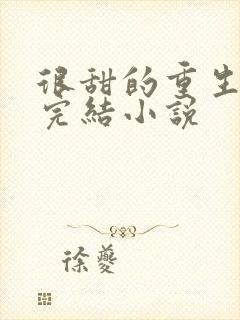 很甜的重生
完結小說
徐夔